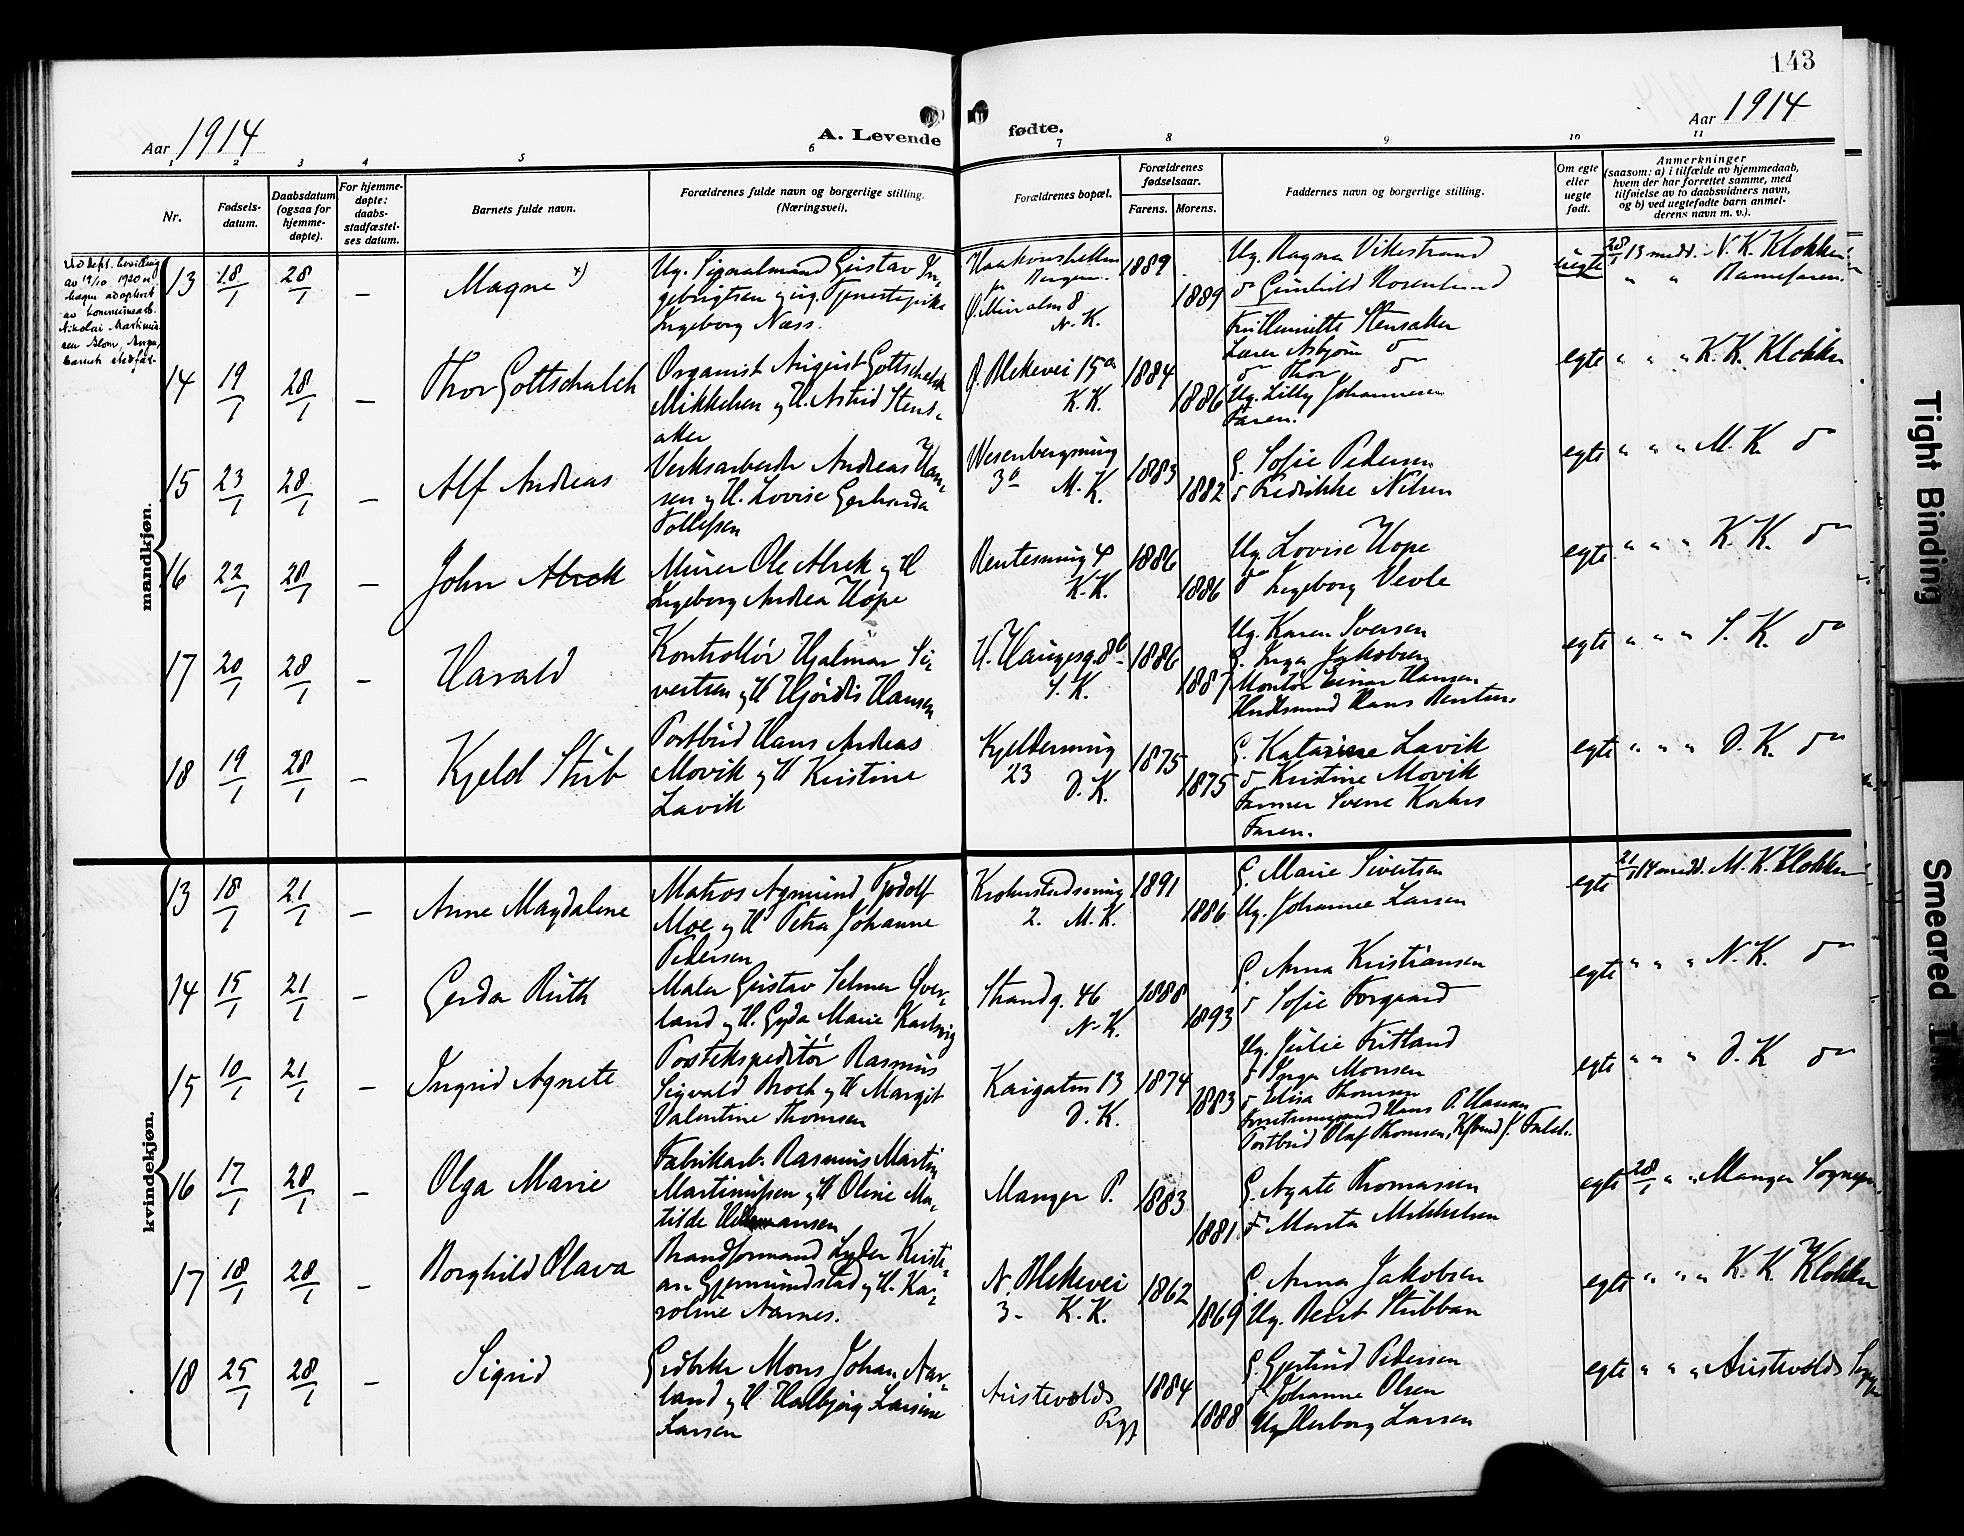 143
Aar 1914
A. Levende
fødte.
Aar 1914
1 2 3 4 5 6 7 8 9 10 11
Nr.
Fødsels-
datum.
Daabsdatum
(ogsaa for
hjemme-
døpte).
For hjemme-
døpte:
daabs-
stadfæstel-
ses datum.
Barnets fulde navn.
Forældrenes fulde navn og borgerlige stilling.
(Næringsvei).
Forældrenes bopæl.
Forældrenes
fødselsaar.
Farens. Morens.
Faddernes navn og borgerlige stilling.
Om egte
eller
uegte
født.
Anmerkninger
(saasom: a) i tilfælde av hjemmedaab,
hvem der har forrettet samme, med
tilføielse av to daabsvidners navn,
og b) ved uegtefødte barn anmel-
derens navn m. v.).
mandkjøn.
av 19/10 1920 er
Magne adopteret
av kommunearb.
Nikolai Martinus-
sen Blom,
barnets stedfar
13 18/1 28/1 – Magne x)
Ug. Signalmand Gustav In-
gebrigtsen og ug. Tjenestepike
Ingeborg Næss.
Haakonshellen
pr Bergen.
N. K.
1889 1889
Ug. Ragna Vikestrand
do Gunhild Rosenlund
uegte
28/1 13 medd. N. K. Klokker
" " Barnefaren.
14 19/1 28/1 – Thor Gottschalck
Organist August Gottschalck
Mikkelsen og H. Astrid Stens-
aker
Ø. Blekevei 15a
K. K.
1884 1886
Fru Henriette Stensaker
Lærer Asbjørn do
do Thor do
Ug. Lilly Johannesen
Faren.
egte " " " K. K. Klokker
15 23/1 28/1 – Alf Andreas
Verksarbeider Andreas Han-
sen og H. Lovise Gerharda
Tollefsen
Wesenbergsmug
3b M. K.
1883 1882
G. Sofie Pedersen
do Fredrikke Nilsen
egte " " " M. K. do
16 22/1 28/1 – John Alrek
Murer Ole Alrek og H
Ingeborg Andrea Hope
Rentesmug 4
K. K.
1886 1886
Ug. Lovise Hope
do Ingeborg Vevle
egte " " " K. K. do
17 20/1 28/1 – Harald
Kontrollør Hjalmar Si-
vertsen og H Hjørdis Hansen
H. Haugesg. 8b
S. K.
1886 1887
Ug. Karen Iversen
G. Inga Jakobsen
Montør Einar Hansen
Hans Bentsen
egte " " " S. K. do
18 19/1 28/1 – Kjeld Stub
Postbud Hans Andreas
Movik og H Kristine
Lavik
Kjeldersmug
23 D. K.
1875 1875
G. Katarine Lavik
do Kristine Movik
Farmer Sverre Kahrs
Faren.
egte " " " D. K. do
kvindekjøn.
13 18/1 21/1 – Anne Magdalene
Matros Agmund Tjodolf
Moe og H Petra Johanne
Pedersen
Krohnstedsmug
2. M. K.
1891 1886
G. Marie Sivertsen
Ug. Johanne Larsen
egte 21/1 14 medd. M. K. Klokker
14 15/1 21/1 – Gerda Ruth
Maler Gustav Selmer Over-
land og H. Gyda Marie Karlsvig
Strandg. 46
N. K.
1888 1893
G. Anna Kristiansen
do Sofie Forgaard
egte " " " N. K. do
15 10/1 21/1 – Ingrid Agnete
Postekspeditør Rasmus
Sigvald Broch og H Margit
Valentine Thomsen
Kaigaten 13
D. K.
1874 1883
Ug. Julie Fritland
F Inga Monsen
do Elisa Thomsen
Hans P. Hansen
Postbud Olaf Thomsen,
egte " " " D. K do
16 17/1 28/1 – Olga Marie
Fabrikarb. Rasmus Martin
Martinussen og H Oline Ma-
tilde Hermansen
Manger P.
1883 1881
G. Agate Thomassen
F Marta Mikkelsen
egte 28/1 " " Manger Sognepr.
17 18/1 28/1 – Borghild Olava
Brandformand Lyder Kristi-
an Gjermundstad og H. Ka-
roline Aarnes.
N. Blekevei
3 - K. K.
1862 1869
G. Anna Jakobsen
Ug. Berit Stubban
egte " " " K. K. Klokker
18 25/1 28/1 – Sigrid
Gidbrker Mons Johan Aar-
land og H Halbjørg Larsine
Larsen
Austevolds
Prgj
1884 1888
G. Gjertrud Pedersen
F Johanne Olsen
Ug Herborg Larsen
egte " " " Austevolds Sogne
Tight Binding
Smeared Ink